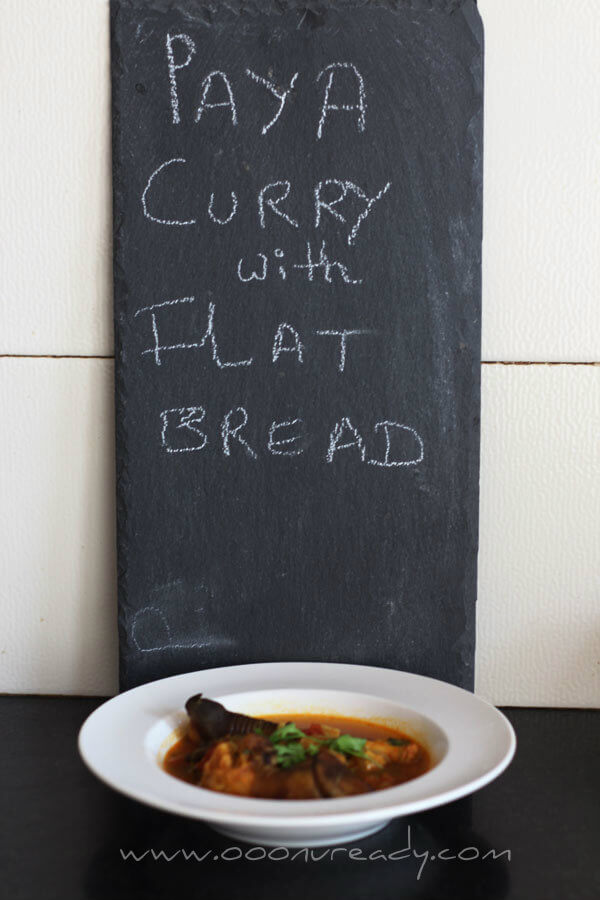 PAYA
CURRY
with
FLAT
BREAD
www.ooonuready.com